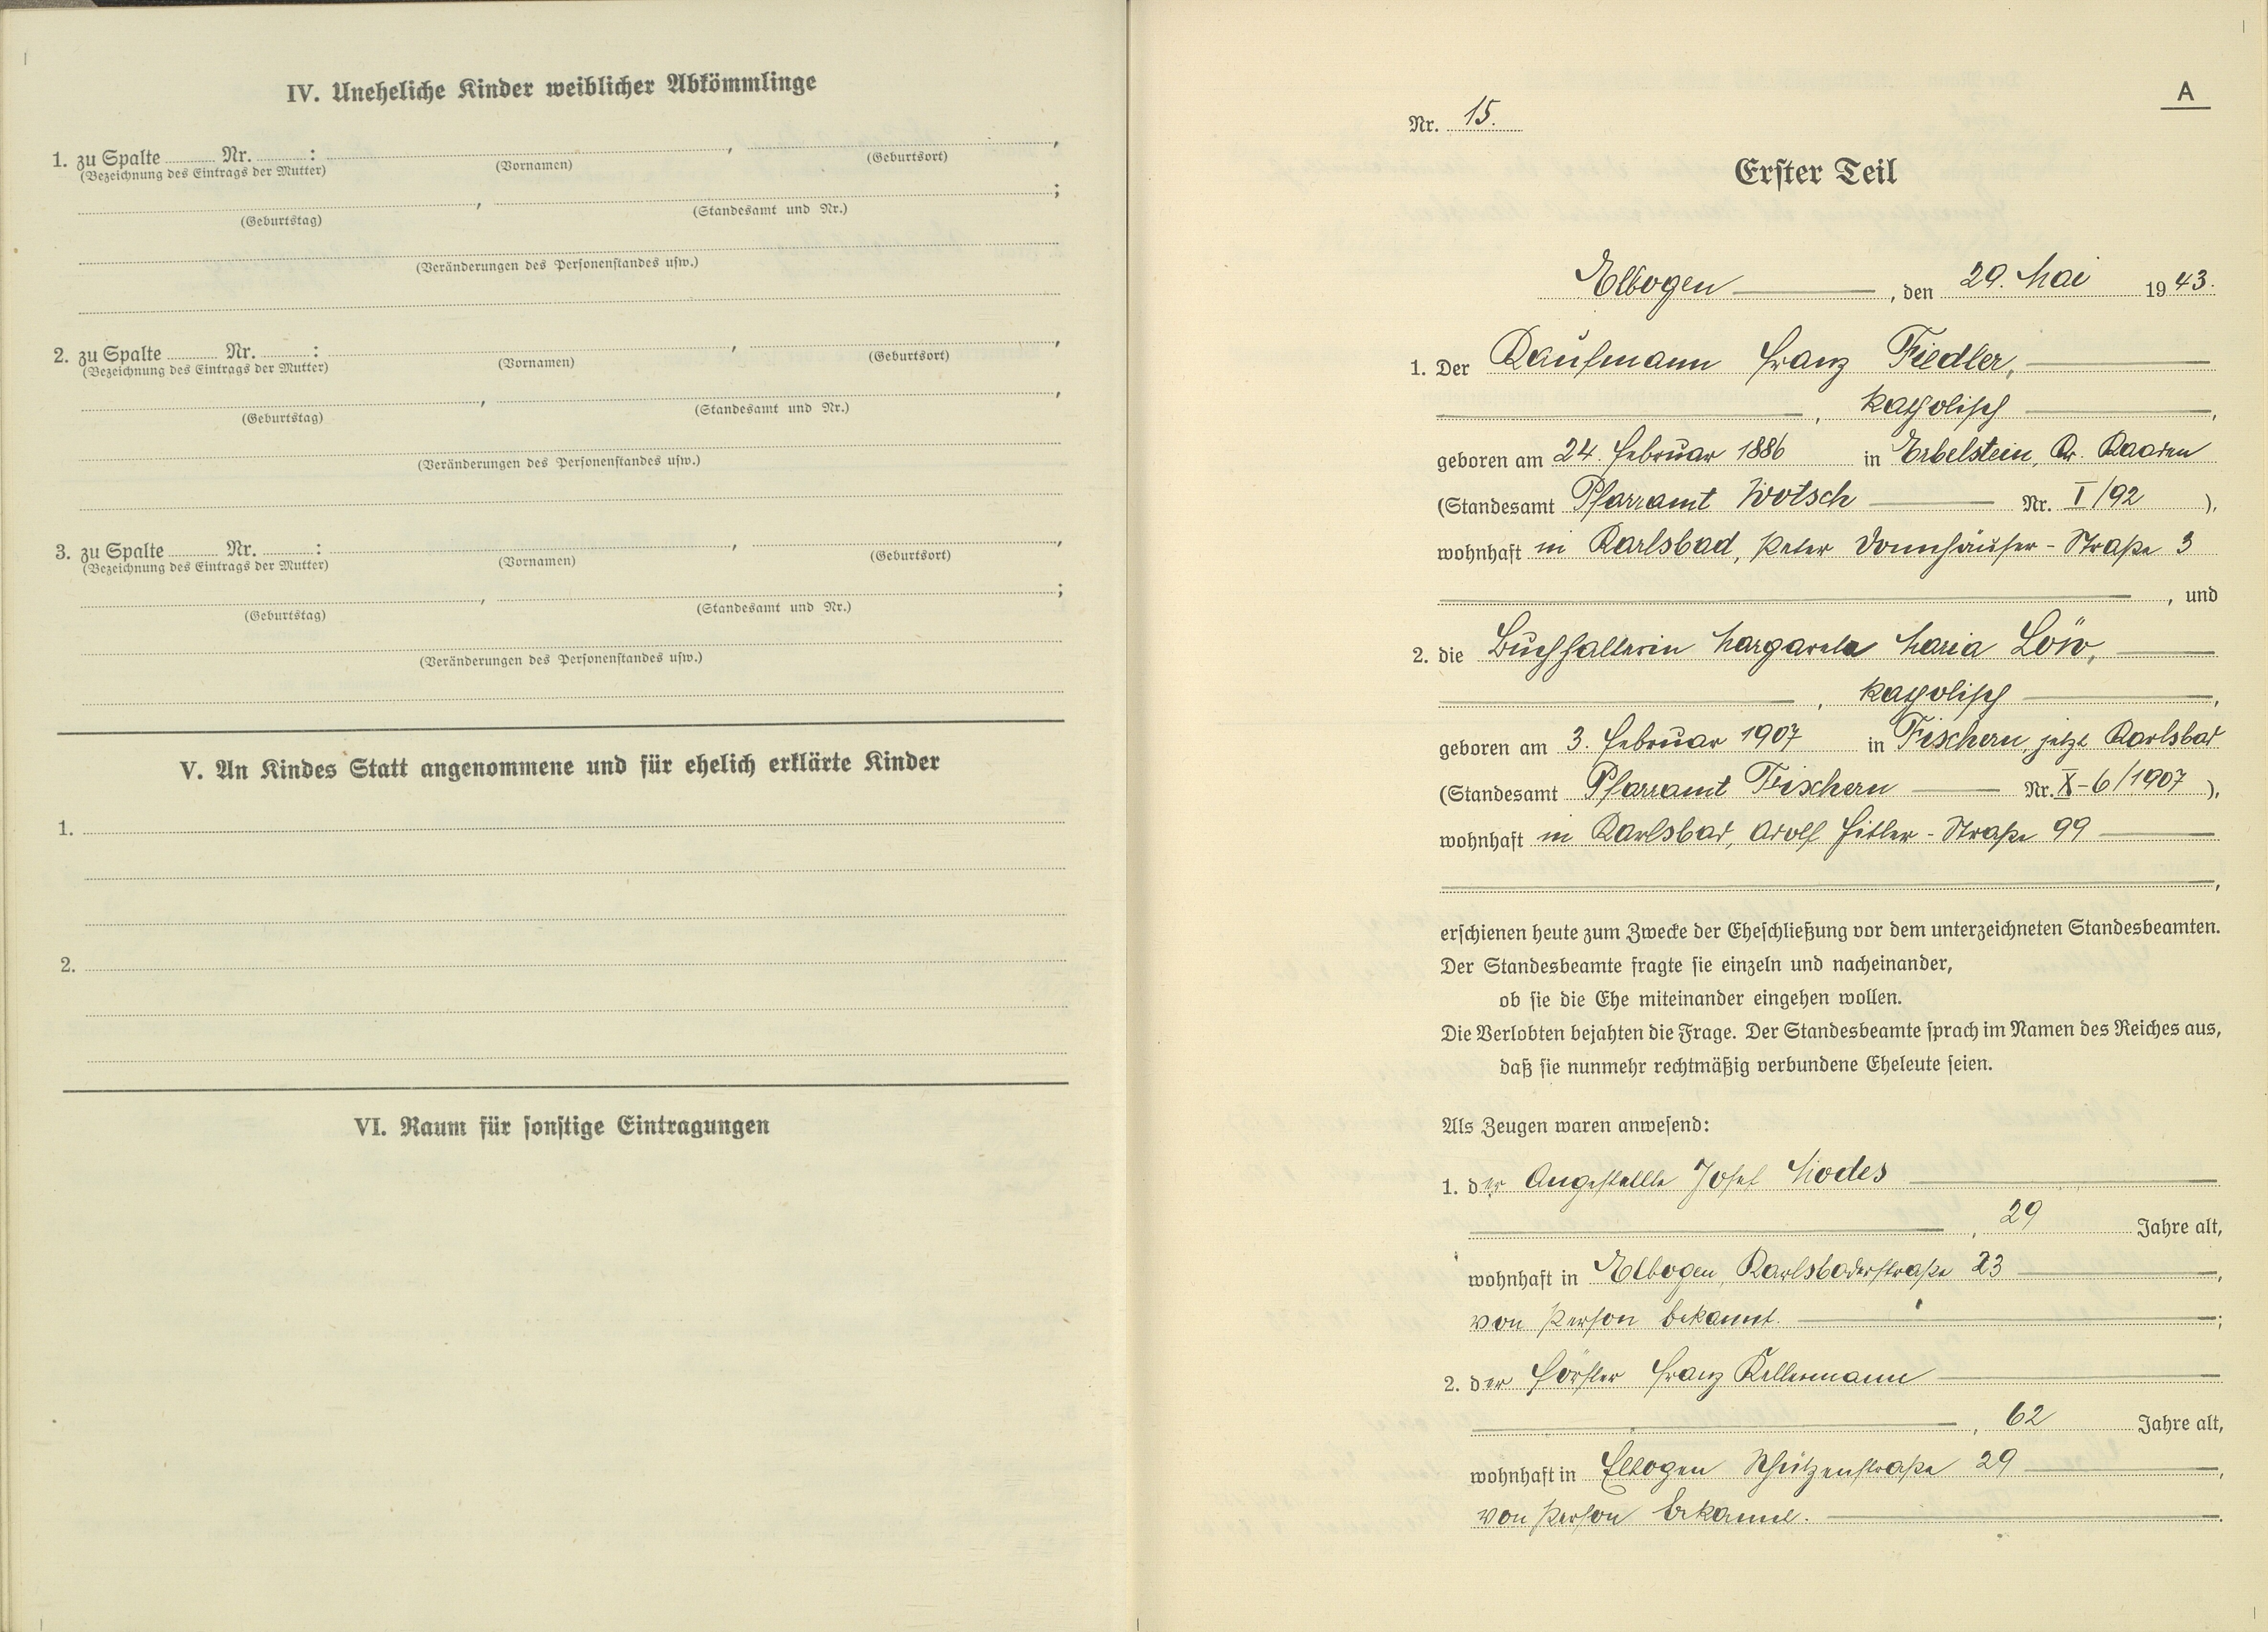 IV. Uneheliche Kinder weiblicher Abkömmlinge
1. zu Spalte ........ Nr. ........ : ........ , ........ ,
(Bezeichnung des Eintrags der Mutter) (Vornamen) (Geburtsort)
........ , ........ ;
(Geburtstag) (Standesamt und Nr.)
(Veränderungen des Personenstandes usw.)
2. zu Spalte ........ Nr. ........ : ........ , ........ ,
(Bezeichnung des Eintrags der Mutter) (Vornamen) (Geburtsort)
........ , ........ ,
(Geburtstag) (Standesamt und Nr.)
(Veränderungen des Personenstandes usw.)
3. zu Spalte ........ Nr. ........ : ........ , ........ ,
(Bezeichnung des Eintrags der Mutter) (Vornamen) (Geburtsort)
........ , ........ ;
(Geburtstag) (Standesamt und Nr.)
(Veränderungen des Personenstandes usw.)
V. An Kindes Statt angenommene und für ehelich erklärte Kinder
1.
2.
VI. Raum für sonstige Eintragungen
A
Nr. 15.
Erster Teil
Elbogen , den 29. Mai 1943.
1. Der Kaufmann Franz Fiedler,
, katholisch ,
geboren am 24. Februar 1886 in Erbelstein, Kr. Kaaden
(Standesamt Pfarramt Wotsch Nr. I/92 ),
wohnhaft in Karlsbad, Peter Donnhäuser-Straße 3
, und
2. die Buchhalterin Margareta Maria Löw,
, katholisch ,
geboren am 3. Februar 1907 in Fischern, jetzt Karlsbad
(Standesamt Pfarramt Fischern Nr. X-6/1907 ),
wohnhaft in Karlsbad, Adolf Hitler-Straße 99
,
erschienen heute zum Zwecke der Eheschließung vor dem unterzeichneten Standesbeamten.
Der Standesbeamte fragte sie einzeln und nacheinander,
ob sie die Ehe miteinander eingehen wollen.
Die Verlobten bejahten die Frage. Der Standesbeamte sprach im Namen des Reiches aus,
daß sie nunmehr rechtmäßig verbundene Eheleute seien.
Als Zeugen waren anwesend:
1. der Angestellte Josef Modes
, 29 Jahre alt,
wohnhaft in Elbogen, Karlsbaderstraße 23 ,
von Person bekannt. ;
2. der Förster Franz Kellermann
, 62 Jahre alt,
wohnhaft in Elbogen Schützenstraße 29 ,
von Person bekannt. .